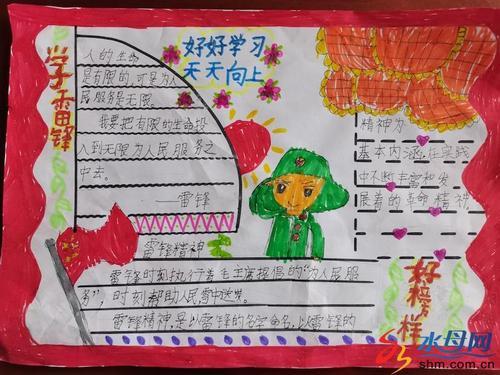 好好学习
天天向上
学雷锋
人的生命
是有限的,可是为人
民服务是无限
我要把有限的生命投
入到无限为人民服务之
中去。
——雷锋
精神为
基本内涵,在实践
中不断丰富和发
展着的革命精神
雷锋精神
雷锋时刻执行着毛主席提倡的“为人民服
务”,时刻帮助人民
雷锋精神,是以雷锋的名字命名,以雷锋的
好榜样
水母网
shm.com.cn